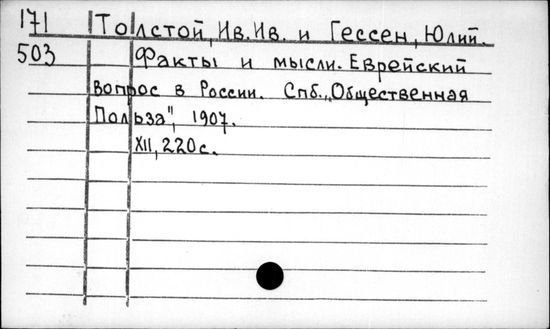 171 Толстой, Ив. Ив. и Гессен, Юлий.
503 Факты и мысли. Еврейский
вопрос в России. Спб., „Общественная
Польза", 1907.
XII, 220 с.